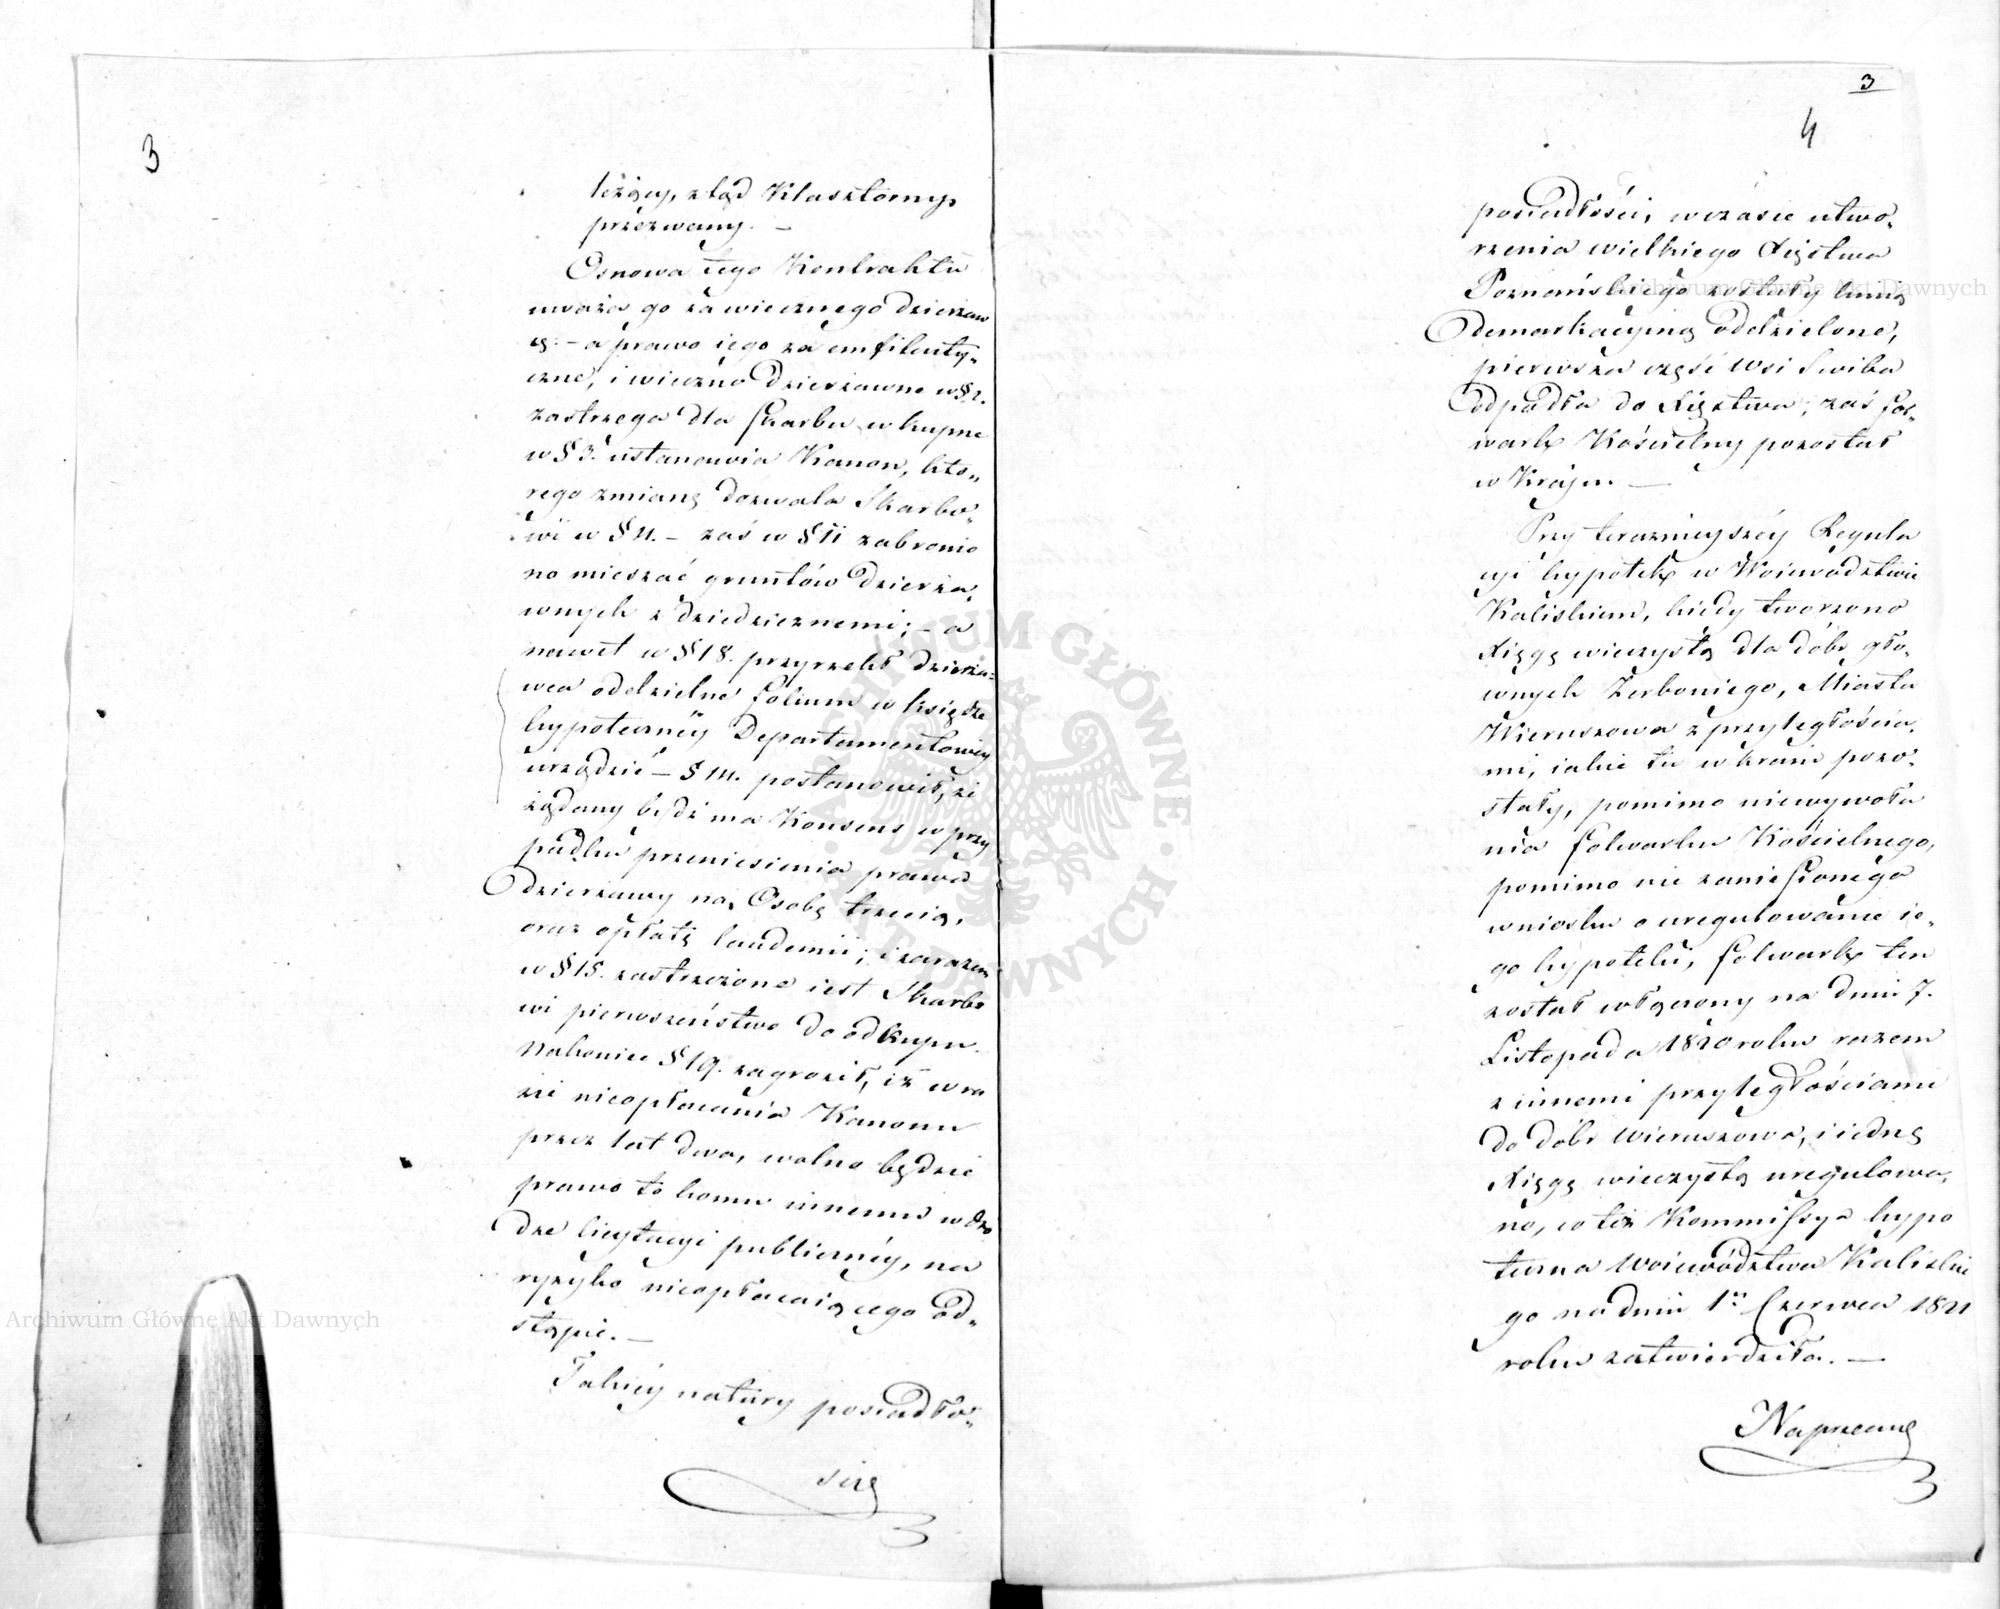 3
leżący, ztąd Klasztornym
przezwany. —
Osnowa tego Kontraktu
uważa go za wiecznego dzierżaw
cę. — a prawo iego za emfiteuty„
czne, i wieczno dzierżawne w §2.
zastrzega dla Skarbu wkupne
w § 3. ustanawia Kanon, któ„
rego zmianę dozwala Skarbo„
wi w § 4. — zaś w § 11 zabronio
no mieszać gruntów dzierża„
wnych z dziedzicznemi; — a
nawet w § 18. przyrzekł dzierża„
wca oddzielne folium w księdze
hypoteczney Departamentowey
urządzić — § 14. postanowił, że
żądany bydź ma Konsens w przy
padku przeniesienia prawa
dzierżawy na Osobę trzecią,
oraz opłatę laudemii; i zarazem
w § 15. zastrzeżone iest Skarbo
wi pierwszeństwo do odkupu.
Nakoniec § 19. zagroził, iż w ra
zie nieopłacania Kanonu
przez lat dwa, wolno będzie
prawo to komu innemu w dro
dze licytacyi publiczney, na
ryzyko nieopłacaiącego od„
stąpić. —
Takiey natury posiadło„
ści
3
4
posiadłości, w czasie utwo„
rzenia wielkiego Xięstwa
Poznańskiego zostały linią
demarkacyiną oddzielone,
pierwsza część Wsi Swiba
odpadła do Xięstwa; zaś fol„
wark Kościelny pozostał
w Kraju. —
Przy terazniejszéy Regula
cyi hypotek w Woiewództwie
Kaliskiem, kiedy tworzono
Xięgę wieczystą dla dóbr głó„
wnych Zerboniego, Miasta
Wieruszowa z przyległościa„
mi, iakie tu w kraiu pozo„
stały, pomimo niewywoła
nia folwarku Kościelnego,
pomimo nie zaniesionego
wniosku o uregulowanie ie„
go hypoteki, folwark ten
został włączony na dniu 7.
Listopada 1820 roku razem
z innemi przyległościami
do dóbr Wieruszowa, i iednę
Xięgę wieczystą uregulowa„
no, co też Kommissya hypo
teczna Woiewództwa Kaliskie
go na dniu 1n Czerwca 1821
roku zatwierdziła. —
Naprzeciw
Archiwum Główne Akt Dawnych
Archiwum Główne Akt Dawnych
ARCHIWUM GŁÓWNE AKT DAWNYCH